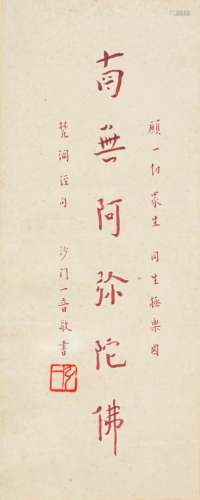 願一切衆生 同生極樂國
南無阿弥陀佛
沙門一音敬書